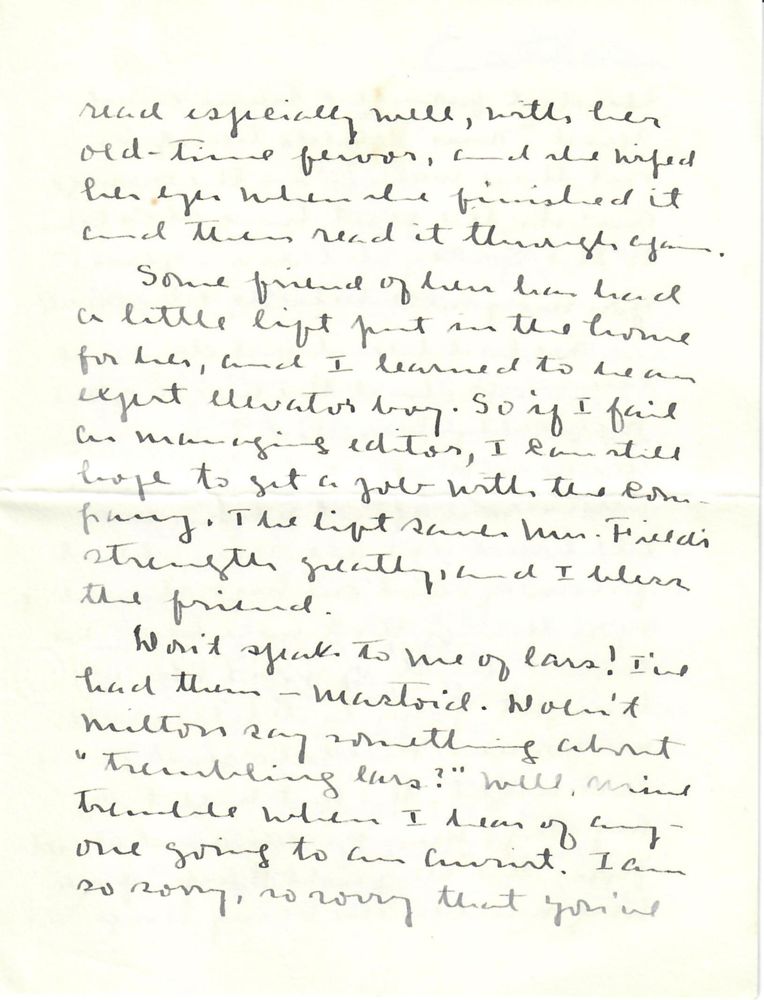 read especially well, with her
old-time fervor, and she wiped
her eyes when she finished it
and then read it through again.
Some friend of hers has had
a little lift put in the home
for her, and I learned to be an
expert elevator boy. So if I fail
as managing editor, I can still
hope to get a job with the com-
pany. The lift saves Mrs. Fields
strength greatly, and I bless
the friend.
Don't speak to me of ears! I've
had them – Mastoid. Doesn't
Milton say something about
"trembling ears?" Well, mine
tremble when I hear of any-
one going to an aurist. I am
so sorry, so sorry that you've